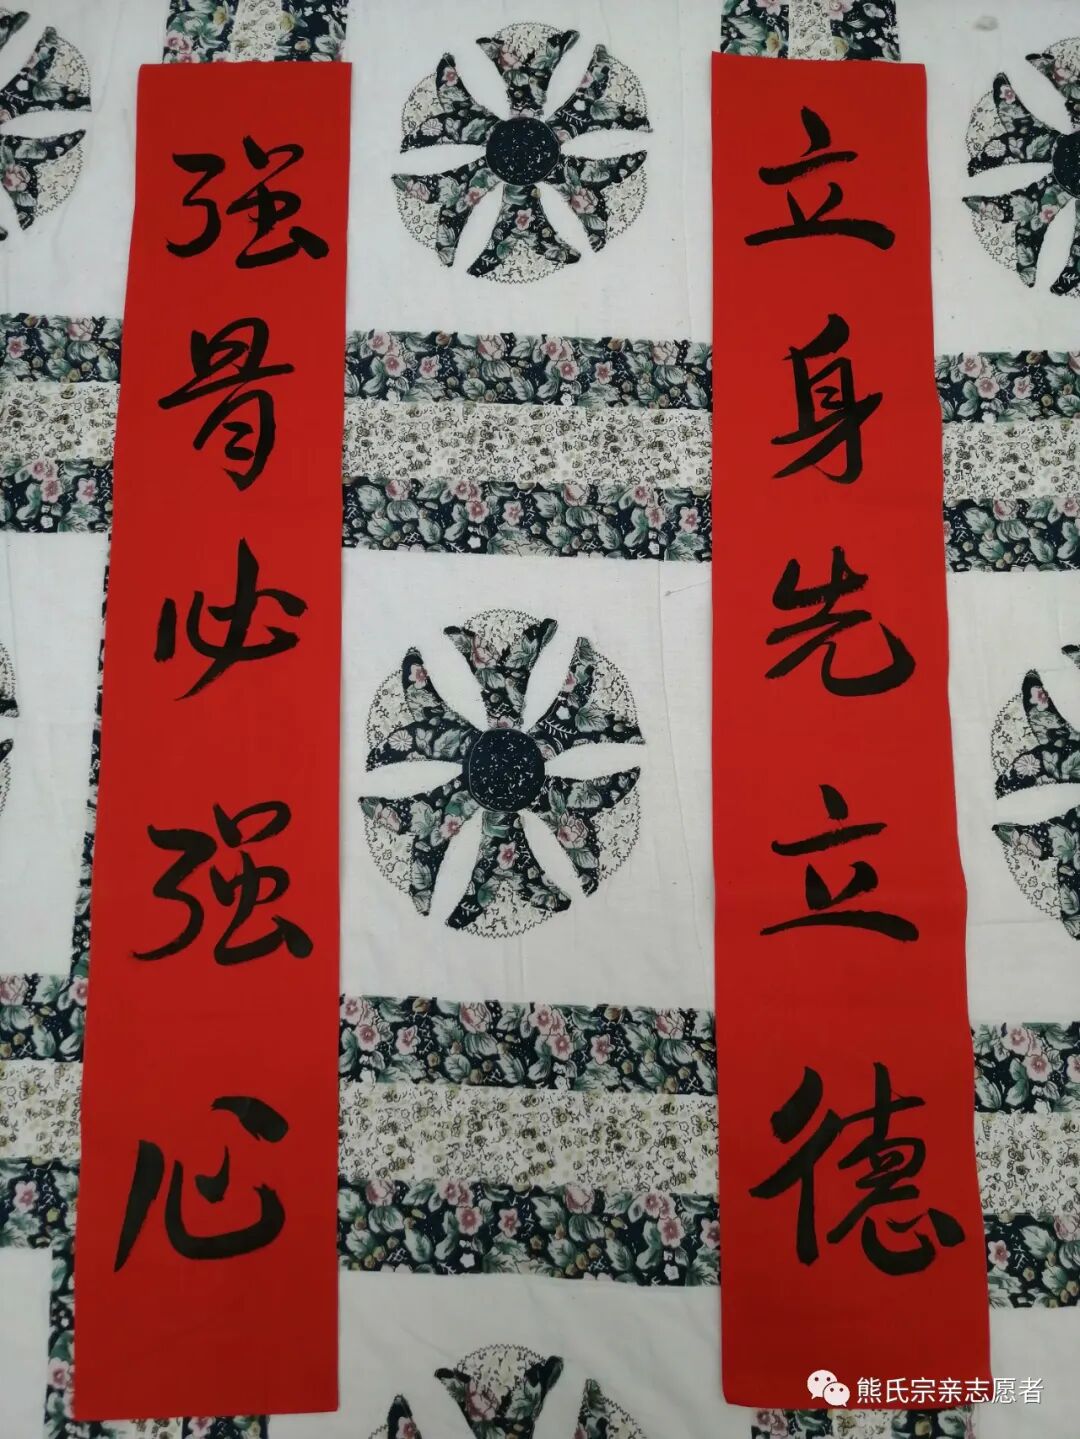 立身先立德
强骨必强心
熊氏宗亲志愿者